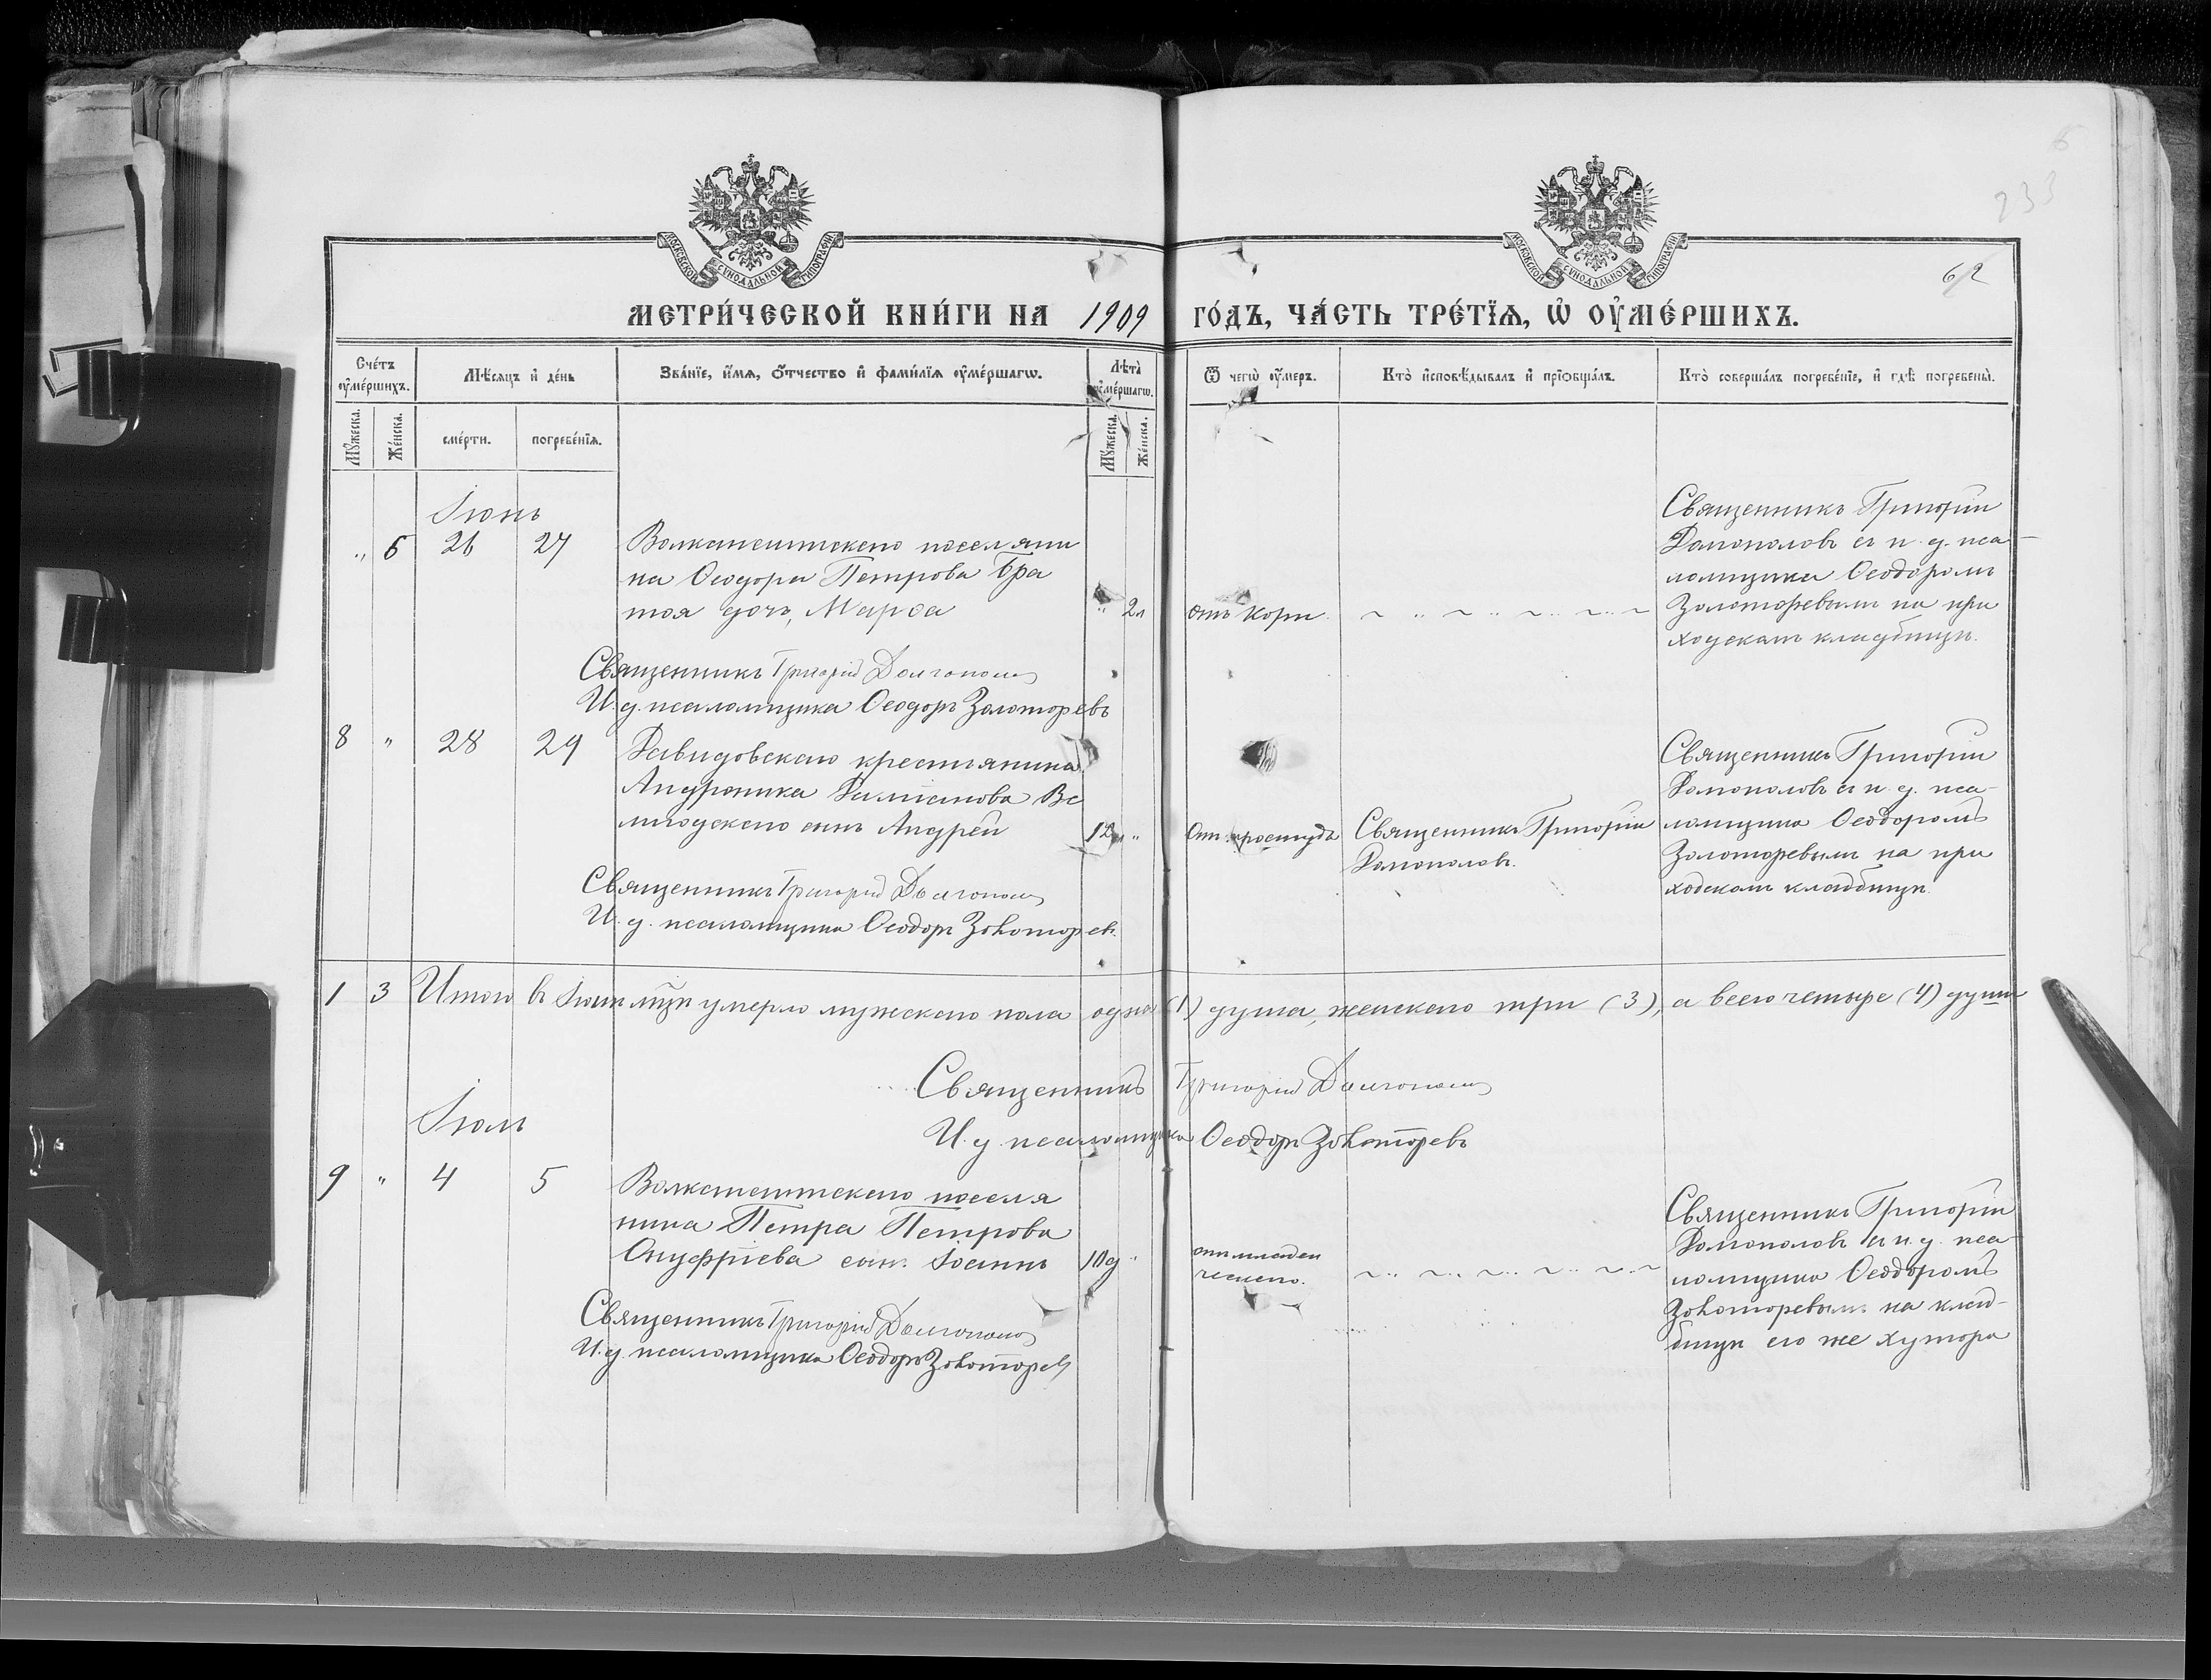 233
62
МОСКОВСКОЙ СУНОДАЛЬНОЙ ТИПОГРАФІИ
МОСКОВСКОЙ СУНОДАЛЬНОЙ ТИПОГРАФІИ
МЕТРИ́ЧЕСКОЙ КНИ́ГИ НА 1909 ГО́ДЪ, ЧА́СТЬ ТРЕ́ТІѦ, Ѡ ОУ҆МЕ́РШИХЪ.
Сче́тъ оу҆ме́ршихъ.
Мѣ́сяцъ и҆ де́нь
Зва́нїе, и҆́мѧ, ѻ҆́тчество и҆ фами́лїѧ оу҆ме́ршагѡ.
Лѣта̀ оу҆ме́ршагѡ.
Ѿ чегѡ̀ оу҆́меръ.
Кто̀ и҆сповѣ́дывалъ и҆ прїѡбща́лъ.
Кто̀ соверша́лъ погребе́нїе, и҆ гдѣ̀ погребены̀.
Мꙋ́жеска.
Же́нска.
сме́рти.
погребе́нїѧ.
Мꙋ́жеска.
Же́нска.
Іюнь
" 6 26 27
Волканештскаго поселяни
на Ѳеодора Петрова Бра
тоя дочь, Марѳа " 2л
отъ кори
Священникъ Григорій
Долгополовъ съ и. д. пса-
ломщика Ѳеодоромъ
Золоторевымъ на при
ходскомъ кладбищѣ.
Священникъ Григорій Долгополовъ
И. д. псаломщика Ѳеодоръ Золоторевъ
8 " 28 29
Давидовскаго крестьянина
Андроника
сынъ Андрей "
Отъ простуды
Священникъ Григорій
Долгополовъ.
Священникъ Григорій
Долгополовъ съ и. д. пса-
ломщика Ѳеодоромъ
Золоторевымъ на при
ходскомъ кладбищѣ
Священникъ Григорій Долгополовъ
И. д. псаломщика Ѳеодоръ Золоторевъ
1 3 Итого въ Іюнѣ мцѣ умерло мужескаго пола одна (1) душа, женскаго три (3), а всего четыре (4) души
Священникъ Григорій Долгополовъ
И. д. псаломщика Ѳеодоръ Золоторевъ
Іюль
9 " 4 5
Волканештскаго поселя
нина Петра Петрова
Онуфріева сынъ Іоаннъ 10д "
отъ младен
ческаго.
Священникъ Григорій
Долгополовъ съ и. д. пса-
ломщика Ѳеодоромъ
Золоторевымъ на клад-
бищѣ его же хутора
Священникъ Григорій Долгополовъ
И. д. псаломщика Ѳеодоръ Золоторевъ